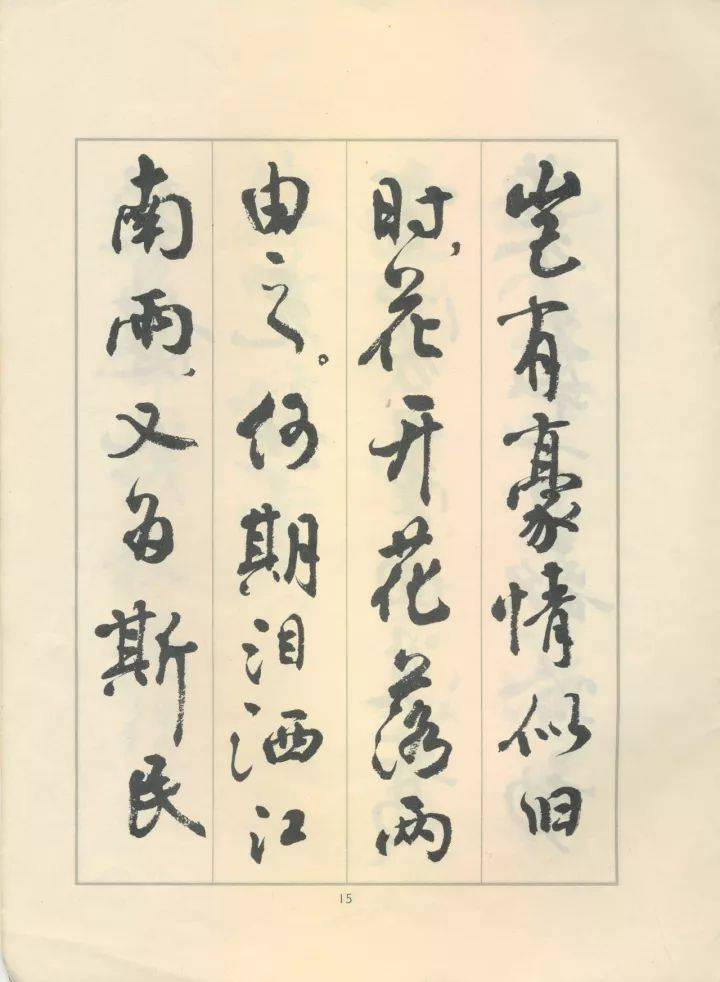 岂有豪情似旧
时,花开花落两
由之。何期泪洒江
南雨、又为斯民
15